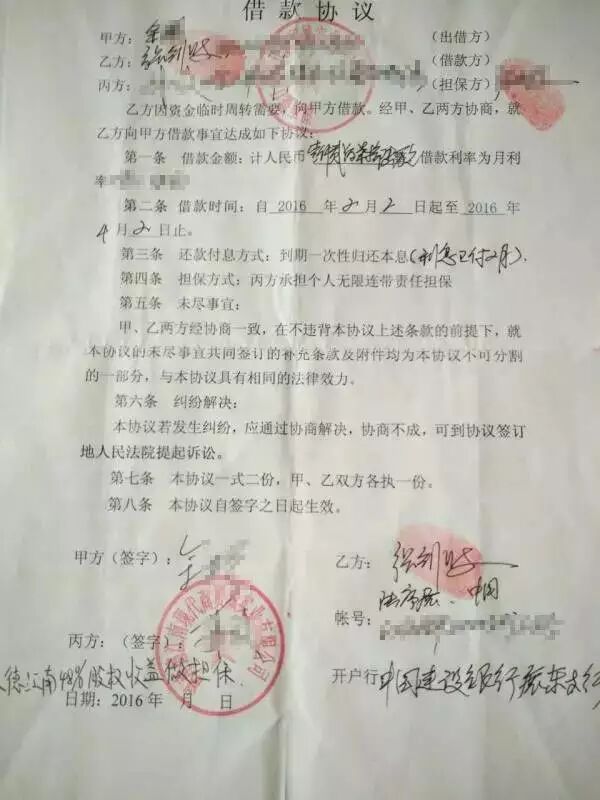 借款协议
甲方：余 （出借方）
乙方： （借款方）
丙方： （担保方）
乙方因资金临时周转需要，向甲方借款。经甲、乙两方协商，就
乙方向甲方借款事宜达成如下协议：
第一条 借款金额：计人民币 借款利率为月利
率
第二条 借款时间：自 2016 年2月2日起至 2016 年
4月2日止。
第三条 还款付息方式：到期一次性归还本息（利息已付2月）.
第四条 担保方式：丙方承担个人无限连带责任担保
第五条 未尽事宜：
甲、乙两方经协商一致，在不违背本协议上述条款的前提下，就
本协议的未尽事宜共同签订的补充条款及附件均为本协议不可分割
的一部分，与本协议具有相同的法律效力。
第六条 纠纷解决：
本协议若发生纠纷，应通过协商解决，协商不成，可到协议签订
地人民法院提起诉讼。
第七条 本协议一式二份，甲、乙双方各执一份。
第八条 本协议自签字之日起生效。
甲方（签字）： 乙方：
帐号：
丙方：（签字）：
德江南48%股权收益做担保. 开户行：中国建设银行振东支行
日期：2016年 月 日